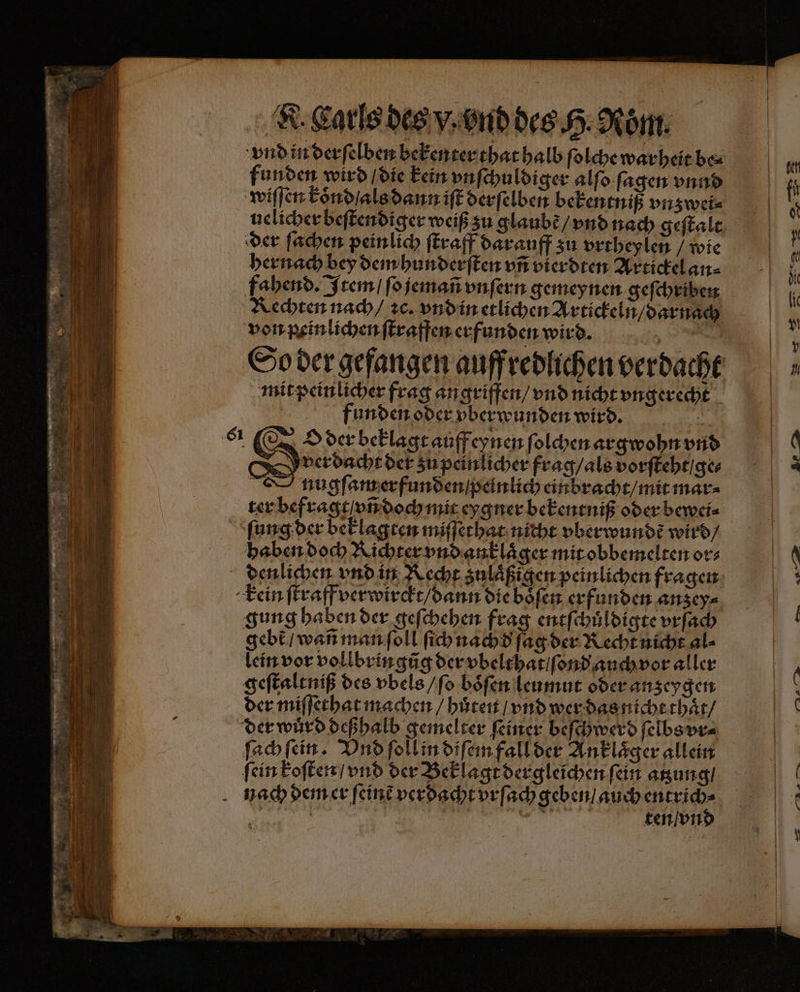 K. Carls des v. vnd des H. Röm.
vnd in derſelben bekenter that halb ſolche warheit be⸗
funden wird / die kein vnſchuldiger alſo ſagen vnnd
wiſſen koͤnd / als dann iſt derſelben bekentniß vnzwei⸗
uelicher beſtendiger weiß zu glaubē / vnd nach geſtalt
der ſachen peinlich ſtraff darauff zu vrtheylen / wie
hernach bey dem hunderſten vñ vierdten Artickel an⸗
fahend. Item / ſo jemañ vnſern gemeynen geſchriben
Rechten nach / ꝛc. vnd in etlichen Artickeln / darnach
von peinlichen ſtraffen erfunden wird.
So der gefangen auff redlichen verdacht
mit peinlicher frag angriffen / vnd nicht vngerecht
funden oder vberwunden wird.
61 SO der beklagt auff eynen ſolchen argwohn vnd
verdacht der zu peinlicher frag / als vorſteht / ge⸗
nugſam erfunden / peinlich einbracht / mit mar⸗
ter befragt / vñ doch mit eygner bekentniß oder bewei⸗
ſung der beklagten miſſethat nicht vberwundē wird /
haben doch Richter vnd anklaͤger mit obbemelten or⸗
denlichen vnd in Recht zulaͤßigen peinlichen fragen
kein ſtraff verwirckt / dann die boͤſen erfunden anzey⸗
gung haben der geſchehen frag entſchuͤldigte vrſach
gebē / wañ man ſoll ſich nach d' ſag der Recht nicht al⸗
lein vor vollbringũg der vbelthat / ſond' auch vor aller
geſtaltniß des vbels / ſo boͤſen leumut oder anzeygen
der miſſethat machen / huͤten / vnd wer das nicht thaͤt /
der wuͤrd deßhalb gemelter ſeiner beſchwerd ſelbs vr⸗
ſach ſein. Vnd ſoll in diſem fall der Anklaͤger allein
ſein koſten / vnd der Beklagt dergleichen ſein atzung /
nach dem er ſeinē verdacht vrſach geben / auch entrich⸗
ten / vnd